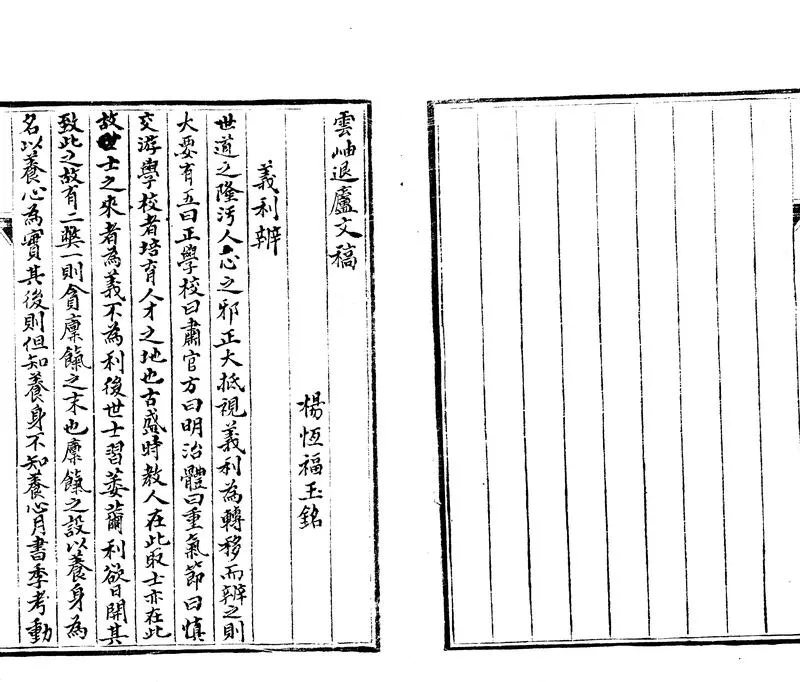 雲岫退廬文稿
楊恆福玉銘
義利辨
世道之隆汚人心之邪正大抵視義利為轉移而辨之則
大要有五曰正學校曰肅官方曰明治體曰重氣節曰慎
交游學校者培育人才之地也古盛時教人在此取士亦在此
故士之來者為義不為利後世士習萎薾利欲日開其
致此之故有二獘一則貪廩餼之末也廩餼之設以養身為
名以養心為實其後則但知養身不知養心月書季考動